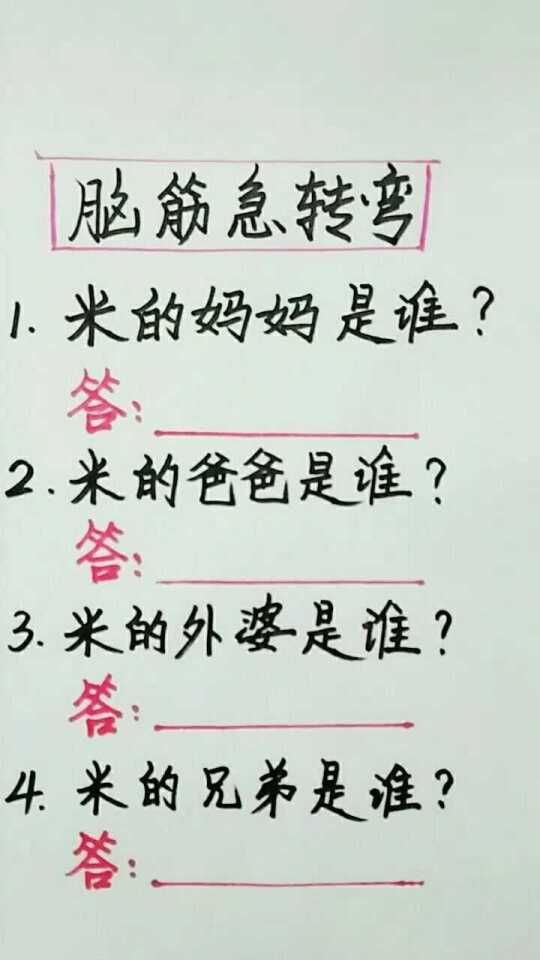 脑筋急转弯
1. 米的妈妈是谁？
答：
2. 米的爸爸是谁？
答：
3. 米的外婆是谁？
答：
4. 米的兄弟是谁？
答：